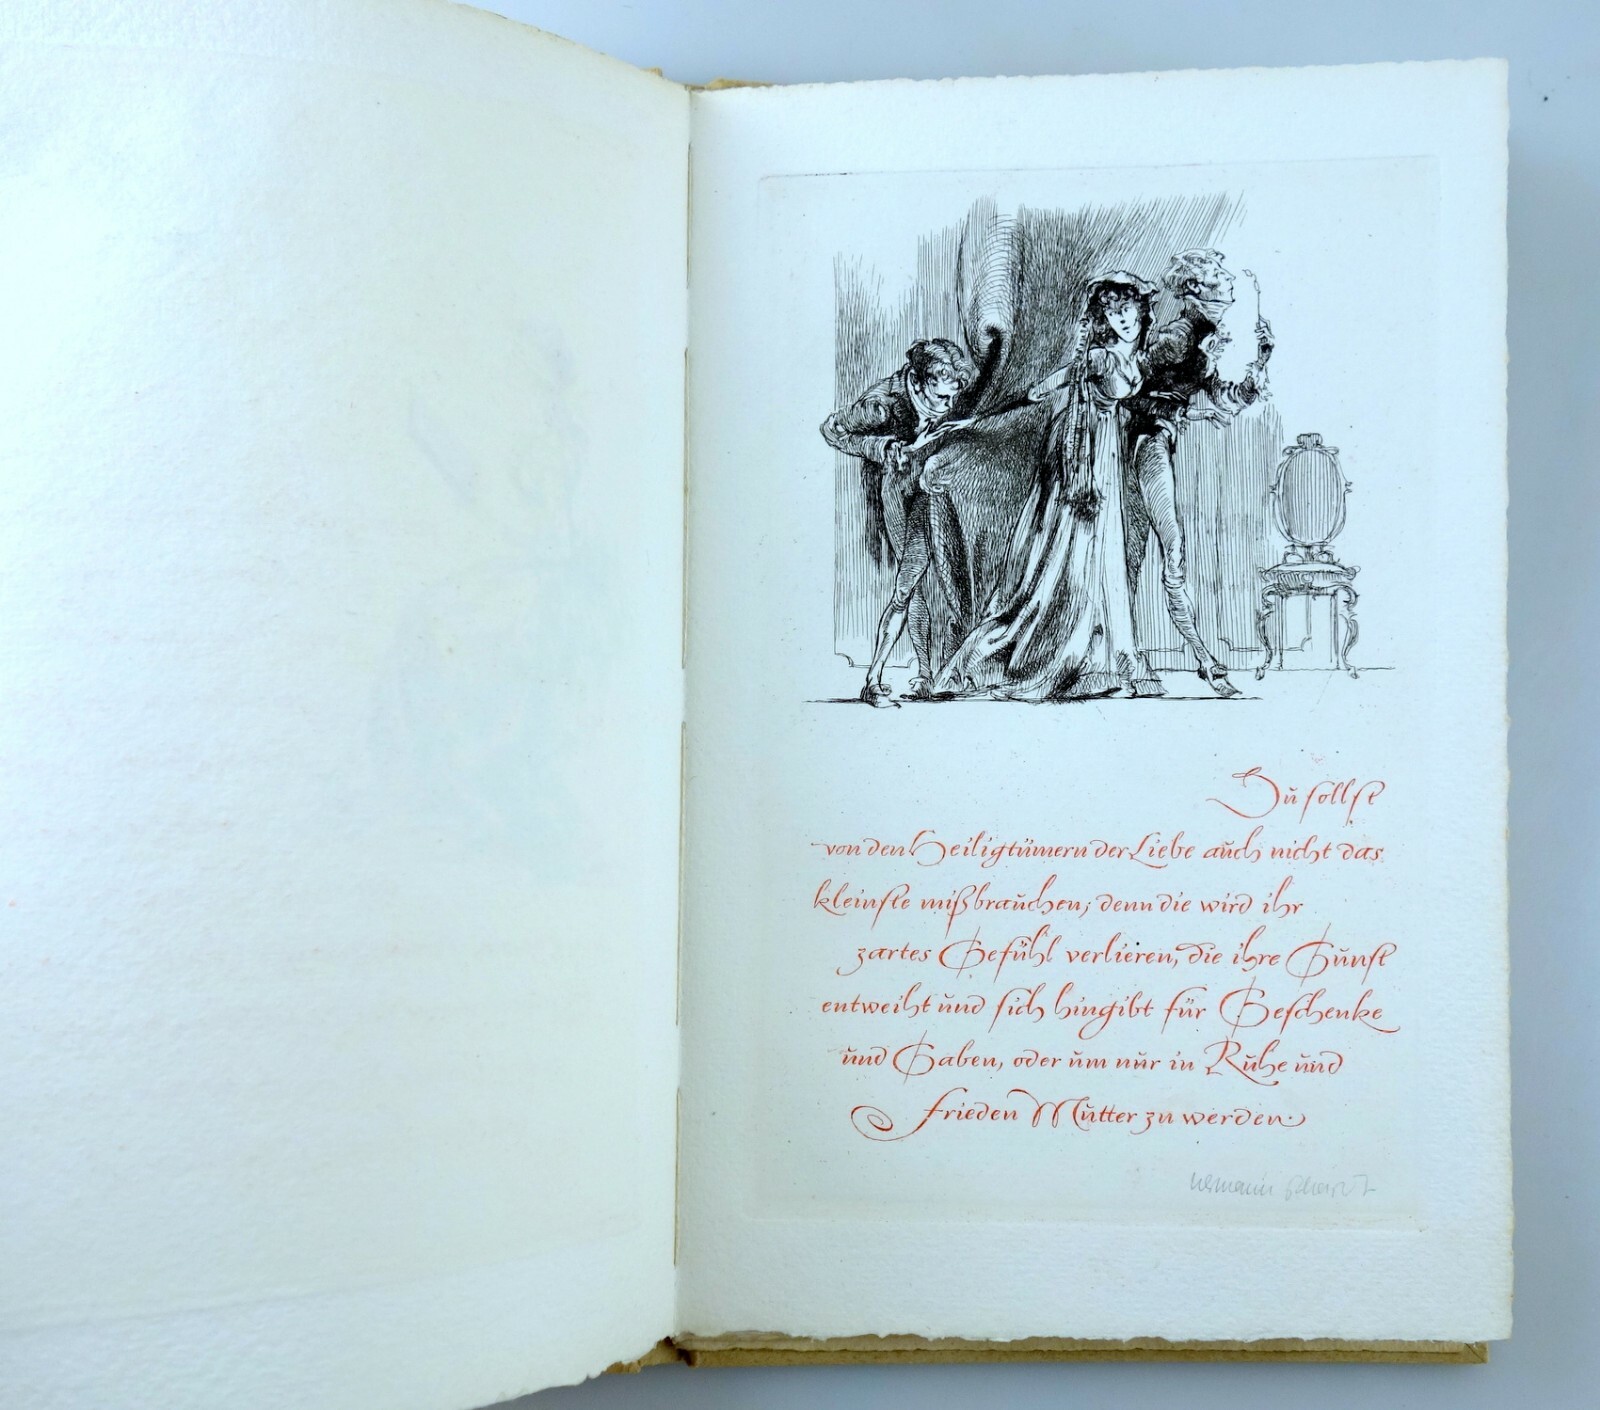 Du sollst
von den Heiligtümern der Liebe auch nicht das
kleinste mißbrauchen; denn die wird ihr
zartes Gefühl verlieren, die ihre Gunst
entweiht und sich hingibt für Geschenke
und Gaben, oder um nur in Ruhe und
Frieden Mutter zu werden.
hermann